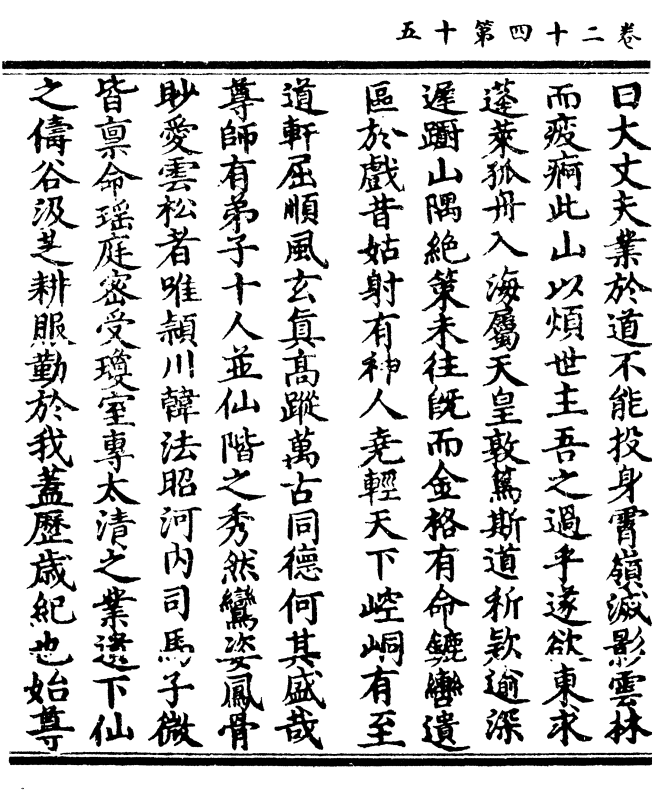 卷二十四第十五
曰大丈夫業於道不能投身霄嶺滅影雲林
而疲痾此山以煩世主吾之過乎遂欲東求
蓬萊孤舟入海屬天皇敦篤斯道祈欵逾深
遲躕山隅絶策未往既而金格有命鑣轡遺
區於戲昔姑射有神人堯輕天下崆峒有至
道軒屈順風玄眞高蹤萬古同德何其盛哉
尊師有弟子十人並仙階之秀然鸞姿鳳骨
眇愛雲松者唯頴川韓法昭河内司馬子微
皆禀命瑶庭密受瓊室專太清之業遺下仙
之儔谷汲芝耕服勤於我蓋歷歲紀也始尊